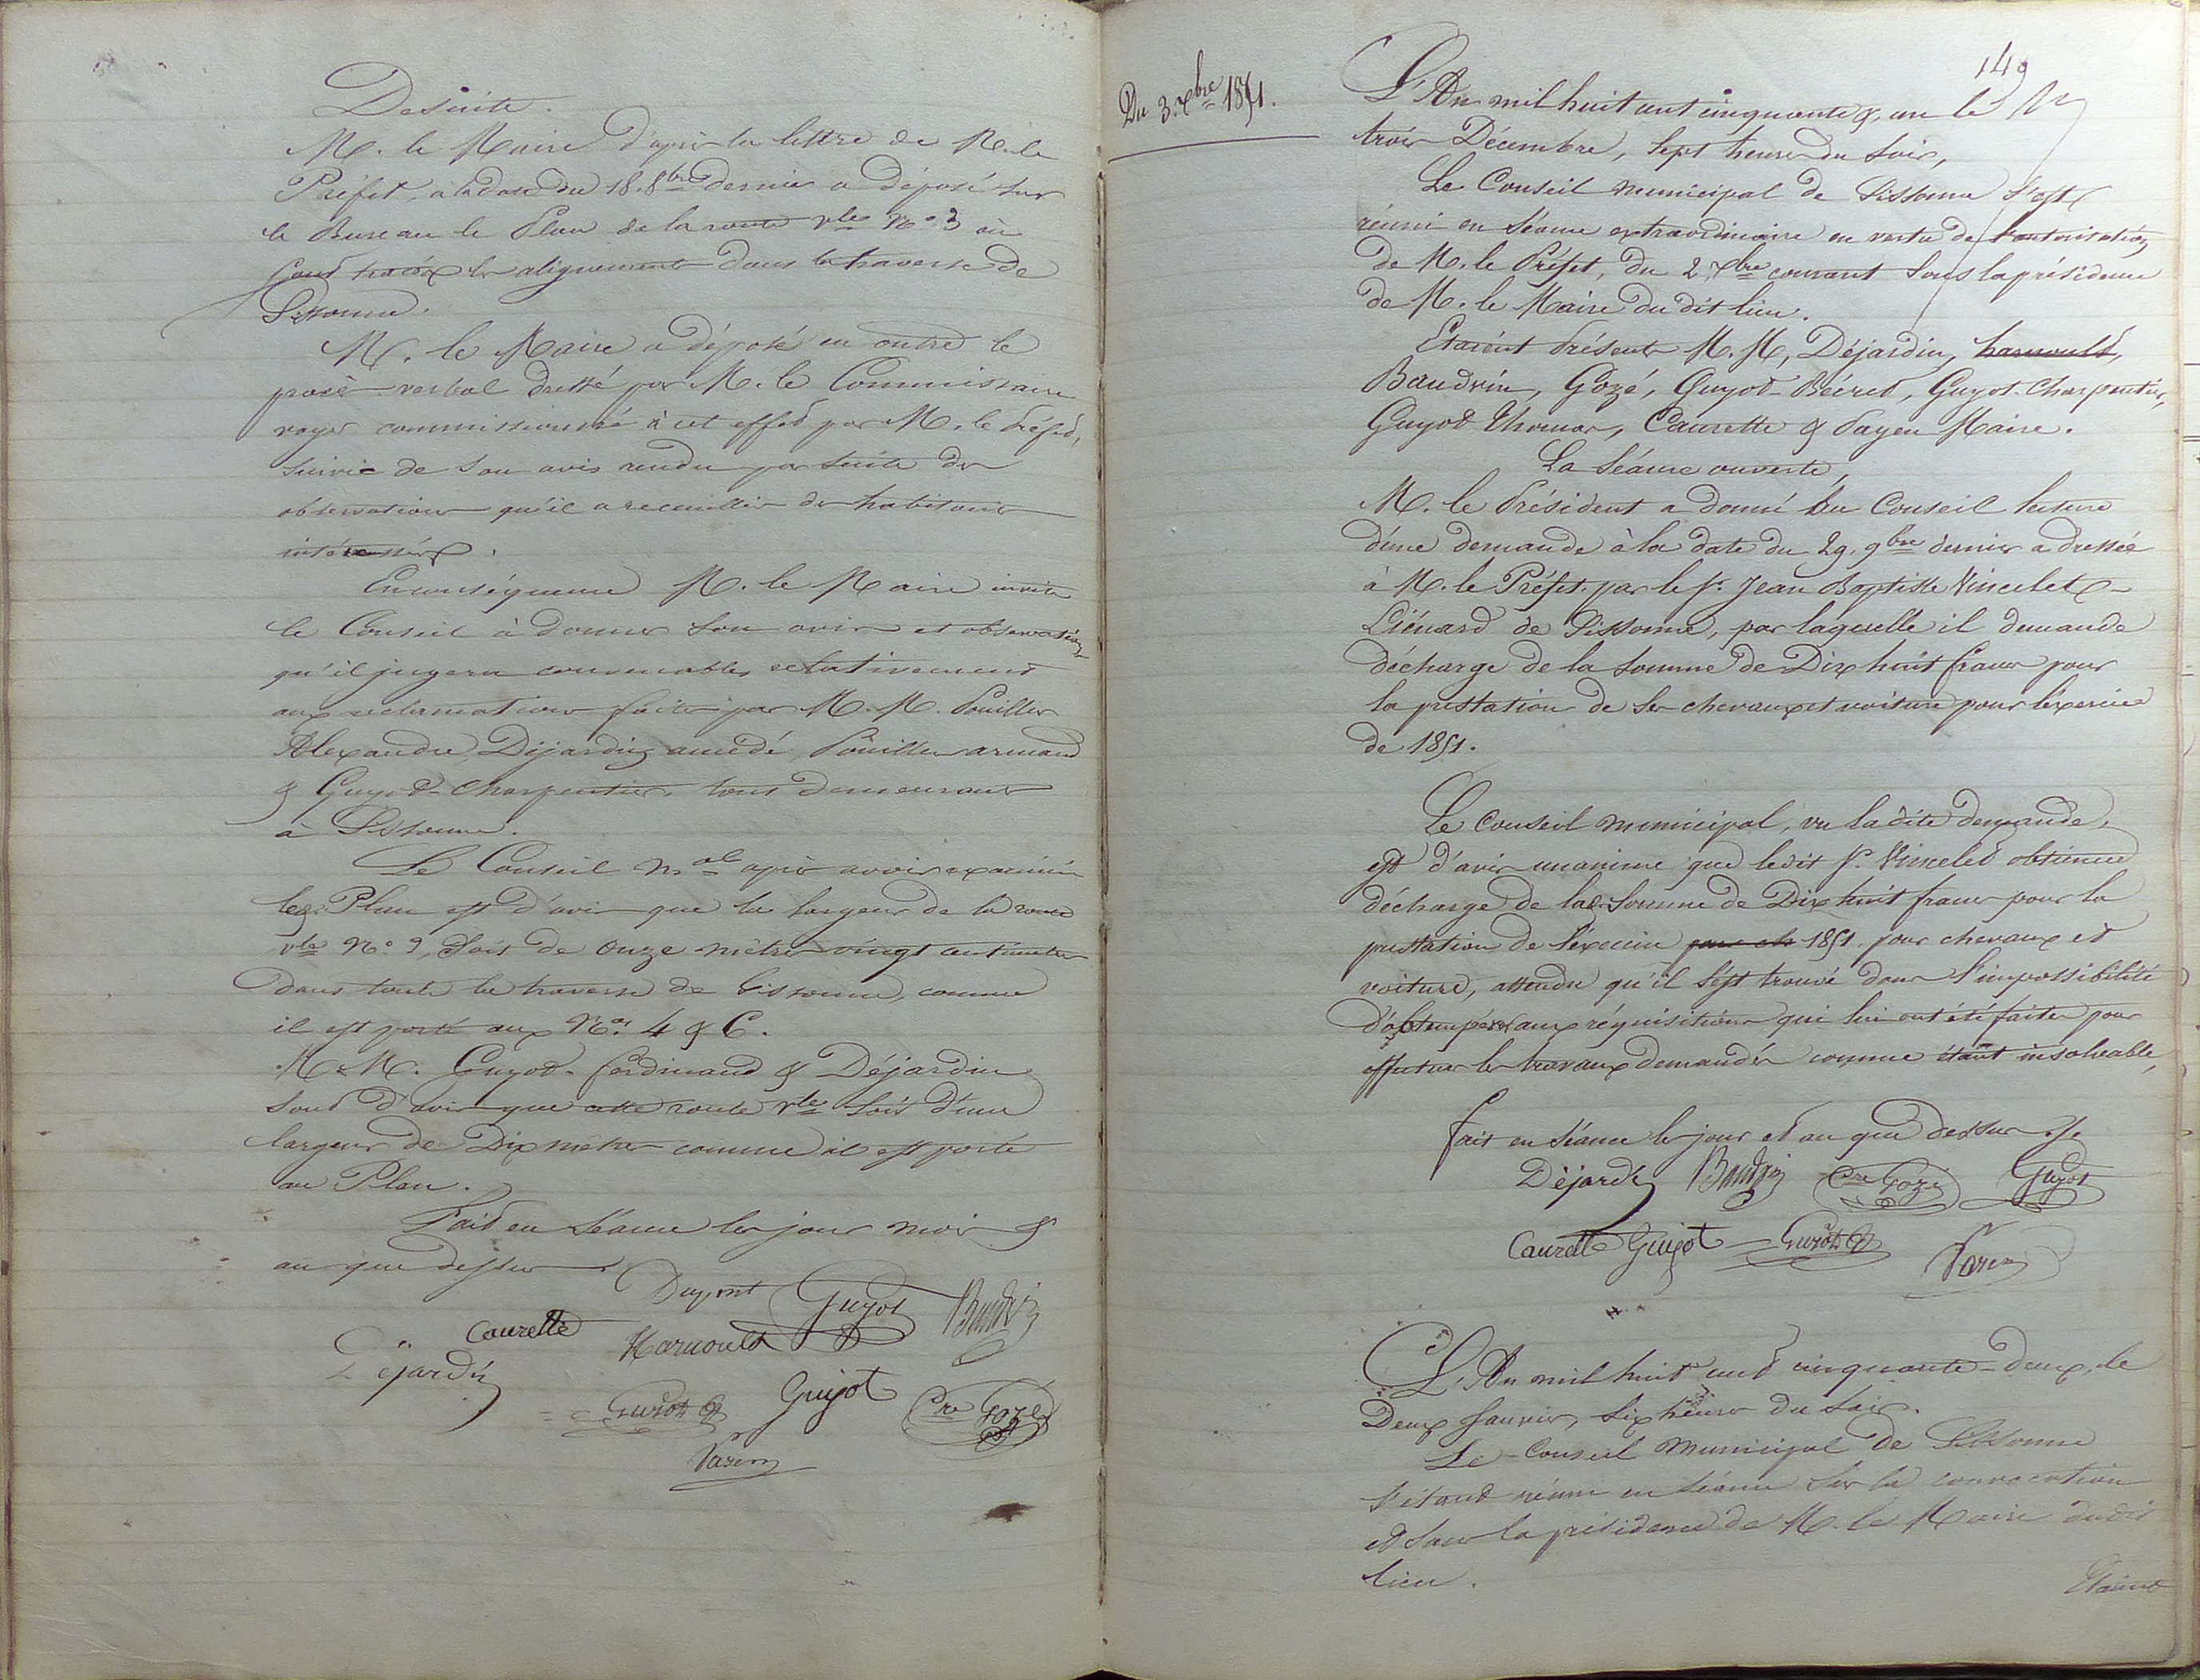 De suite.
M. le Maire d'après la lettre de M. le
Préfet, à la date du 18. 8bre dernier a déposé sur
le Bureau le Plan de la route vle No. 3 où
sont tracés les alignements dans la traverse de
Sissonne.
M. le Maire a déposé en outre le
procès-verbal dressé par M. le Commissaire
voyer commissionné à cet effet par M. le Préfet,
suivie de son avis rendu par suite des
observations qu'il a recueillies des habitans
intéressés.
En conséquence M. le Maire invite
le Conseil à donner son avis et observations
qu'il jugera convenables relativement
aux réclamations faites par M. M. Pouiller
Alexandre, Déjardin amédé, Pouiller armand
& Guyot-Charpentier, tous demeurans
à Sissonne.
Le Conseil mal après avoir examiné
les Plan est d'avis que la largeur de la route
vle No. 3, soit de onze mètres vingt centimètres
dans toute la traverse de Sissonne, comme
il est porté aux Nos. 4 & 6.
M. M. Guyot-ferdinand & Déjardin
sont d'avis que cette route vle soit d'une
largeur de Dix mètres comme il est porté
au Plan.
Fait en séance les jour mois &
an que dessus
Dupont Guyot Baudrin
Caurette Harnould
Déjardin
Guyot Guijot Cre Gozé
Payen
149
Du 3. Xbre 1851.
L'An mil huit cent cinquante & un le
trois Décembre, sept heures du soir,
Le Conseil municipal de Sissonne s'est
réuni en séance extraordinaire en vertu de l'autorisation
de M. le Préfet, du 2 Xbre courant sous la présidence
de M. le Maire du dit lieu.
Etaient Présents M. M, Déjardin, harnould,
Baudrin, Gozé, Guyot-Bécret, Guyot-Charpentier,
Guyot Thomas, Caurette & Payen Maire.
La séance ouverte,
M. le Président a donné au Conseil lecture
d'une demande à la date du 29. 9bre dernier adressée
à M. le Préfet par le sr. Jean Baptiste Vincelet-
Liénard de Sissonne, par laquelle il demande
décharge de la somme de Dix huit francs pour
la prestation de ses chevaux et voiture pour l'éxercice
de 1851.
Le Conseil municipal, vu la dite demande,
est d'avis unanime que ledit sr. Vincelet obtienne
décharge de la somme de Dix huit francs pour la
prestation de l'éxercice pour ch 1851. pour chevaux et
voiture, attendu qu'il s'est trouvé dans l'impossibilité
d'obtempérer aux réquisitions qui lui ont été faites pour
effectuer les travaux demandés comme étant insolvable,
fait en séance les jour et an que dessus
Déjardin Baudrin Cre Gozé Guyot
Caurette Guijot Guyot Payen
L'An mil huit cent cinquante-deux, le
Deux Janvier, six heures du soir.
Le Conseil Municipal de Sissonne
s'étant réuni en séance sur la convocation
et sous la présidence de M. le Maire dudit
lieu.
Etaient